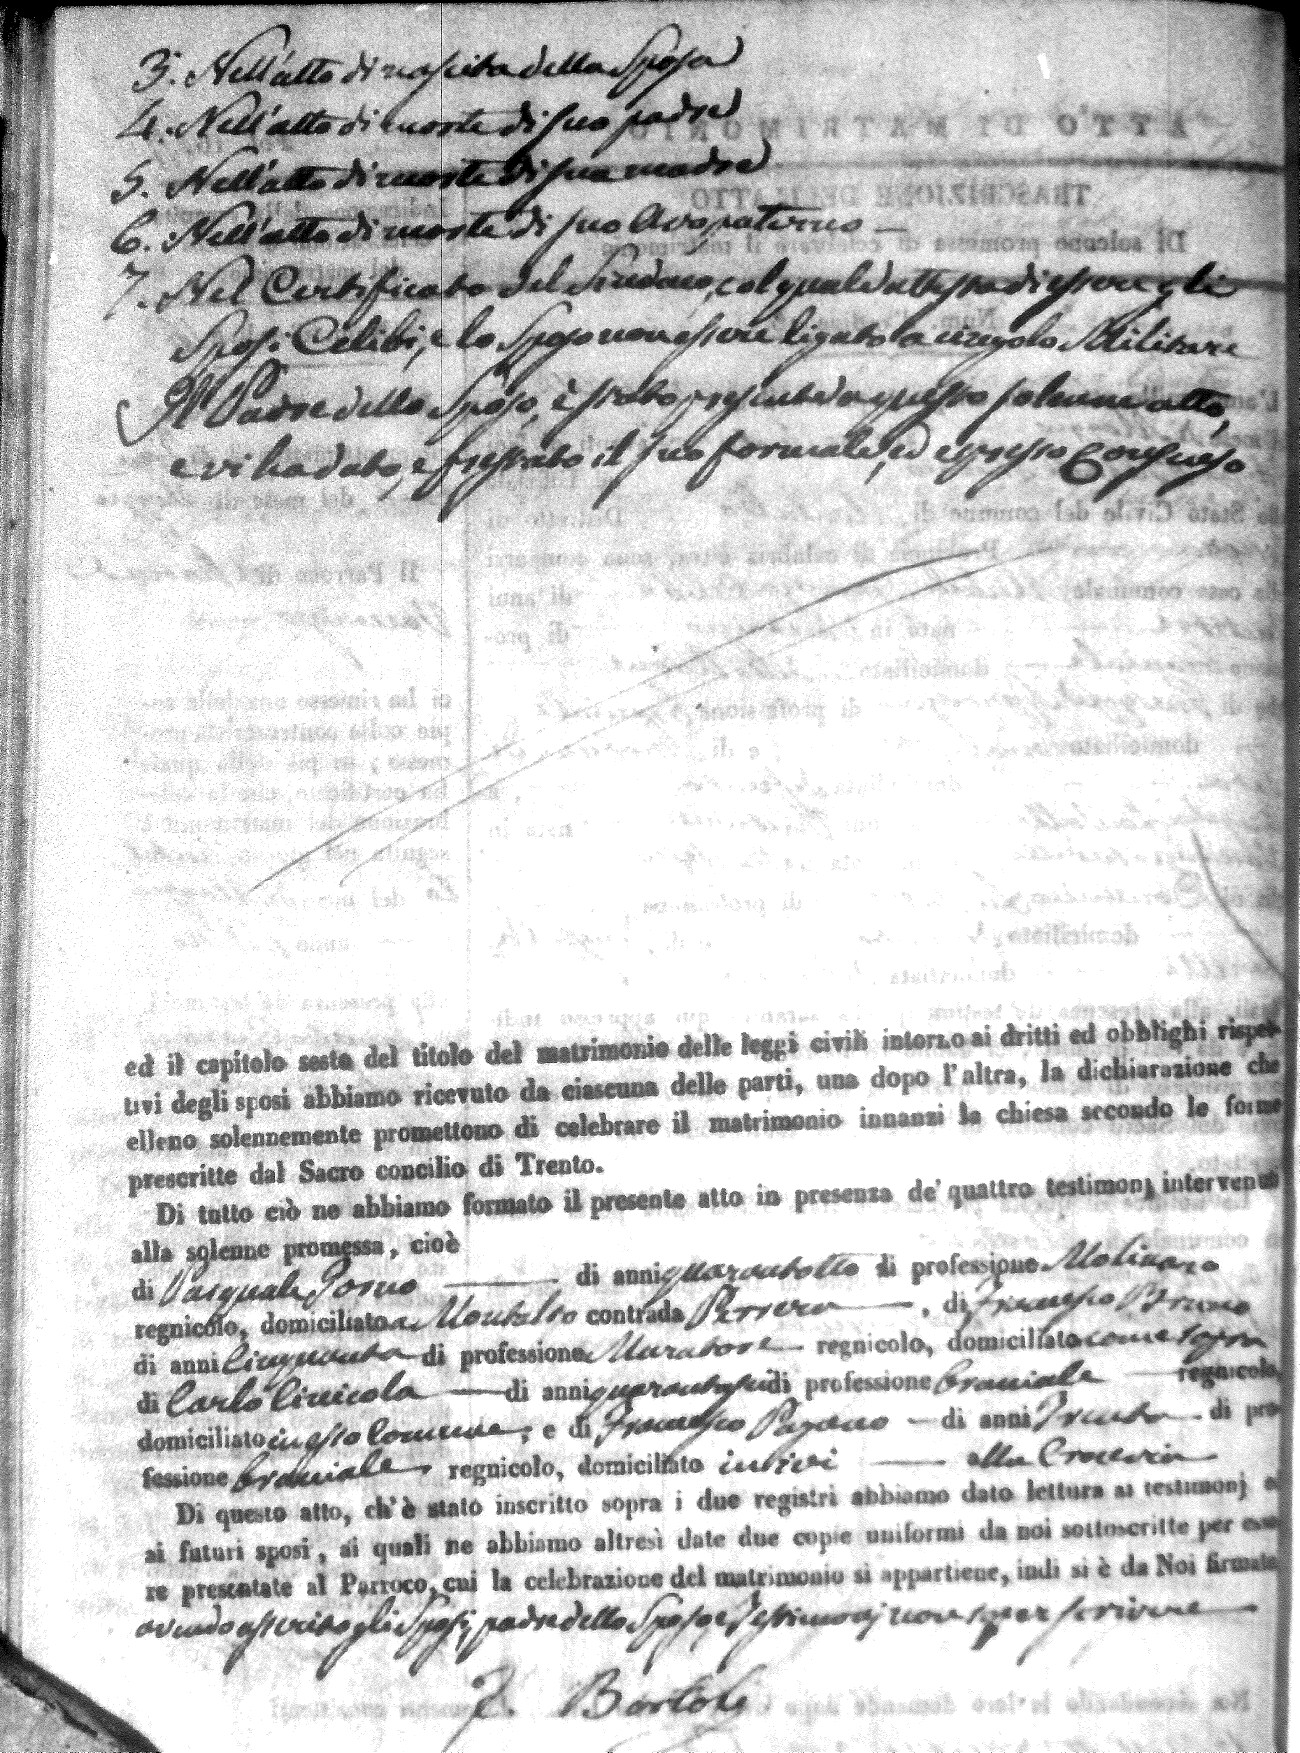 3. Nell'atto di nascita della Sposa
4. Nell'atto di morte di suo padre
5. Nell'atto di morte di sua madre
6. Nell'atto di morte di suo Avo paterno —
7. Nel Certificato del Sindaco, col quale attesta di essere gli
Sposi Celibi, e lo Sposo non essere ligato a vincolo Militare
Il Padre dello Sposo, è stato presente a questo solenne atto,
e vi ha dato, e prestato il suo formale, ed espresso Consenso
ed il capitolo sesto del titolo del matrimonio delle leggi civili intorno ai dritti ed obblighi rispet-
tivi degli sposi abbiamo ricevuto da ciascuna delle parti, una dopo l'altra, la dichiarazione che
elleno solennemente promettono di celebrare il matrimonio innanzi la chiesa secondo le forme
prescritte dal Sacro concilio di Trento.
Di tutto ciò ne abbiamo formato il presente atto in presenza de' quattro testimonj intervenuti
alla solenne promessa, cioè
di Pasquale Porno — di anni quarantotto di professione Molinaro
regnicolo, domiciliato a Montalto contrada —, di Francesco Bruno
di anni Cinquanta di professione Muratore — regnicolo, domiciliato come sopra
di Carlo Civicola — di anni quarantasei di professione Braciale — regnicolo,
domiciliato in esso Comune, e di Francesco Pagano — di anni Trenta — di pro-
fessione Braciale, regnicolo, domiciliato in ivi — alla
Di questo atto, ch'è stato inscritto sopra i due registri abbiamo dato lettura ai testimonj e
ai futuri sposi, ai quali ne abbiamo altresì date due copie uniformi da noi sottoscritte per esse-
re presentate al Parroco, cui la celebrazione del matrimonio si appartiene, indi si è da Noi firmato
avendo asserito gli Sposi, padre dello Sposo e Testimonj non saper scrivere —